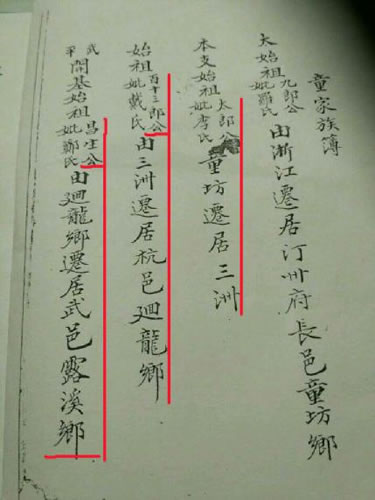 童家族簿
太始祖九郎公妣羅氏由浙江遷居汀州府長邑童坊鄉
本支始祖太郎公妣李氏童坊遷居三洲
始祖百十三郎公妣戴氏由三洲遷居杭邑迴龍鄉
武平開基始祖昌生公妣鄭氏由迴龍鄉遷居武邑露溪鄉